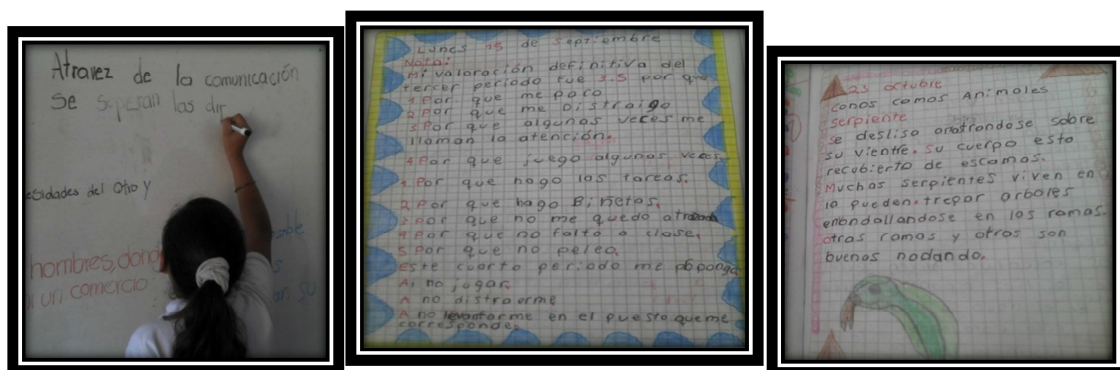 Atravez de la comunicación
se superan las dir
esidades del Otro y
hombres, dond
un comercio
an su
Lunes 15 de septiembre
Nota:
Mi valoración definitiva del
tercer periodo fue 3.5 por que
1 Por que me paro
2 Por que me Distraigo
3 Por que algunas veces me
llaman la atención.
4 Por que juego algunas veces
1. Por que hago las tareas.
2. Por que hago
3 Por que no me quedo
4 Por que no falto a clase.
5 Por que no peleo.
Este cuarto periodo me
A no jugar
A no distraerme
A no levantarme en el puesto que me
corresponde.
23 octubre
conos camos Animales
serpiente
se deslisa arastrandose sobre
su vientre. su cuerpo esta
recubierto de escamas.
Muchas serpientes viven en
la pueden. trepar arboles
en las ramas.
otras ramas y otros son
buenas nodando.